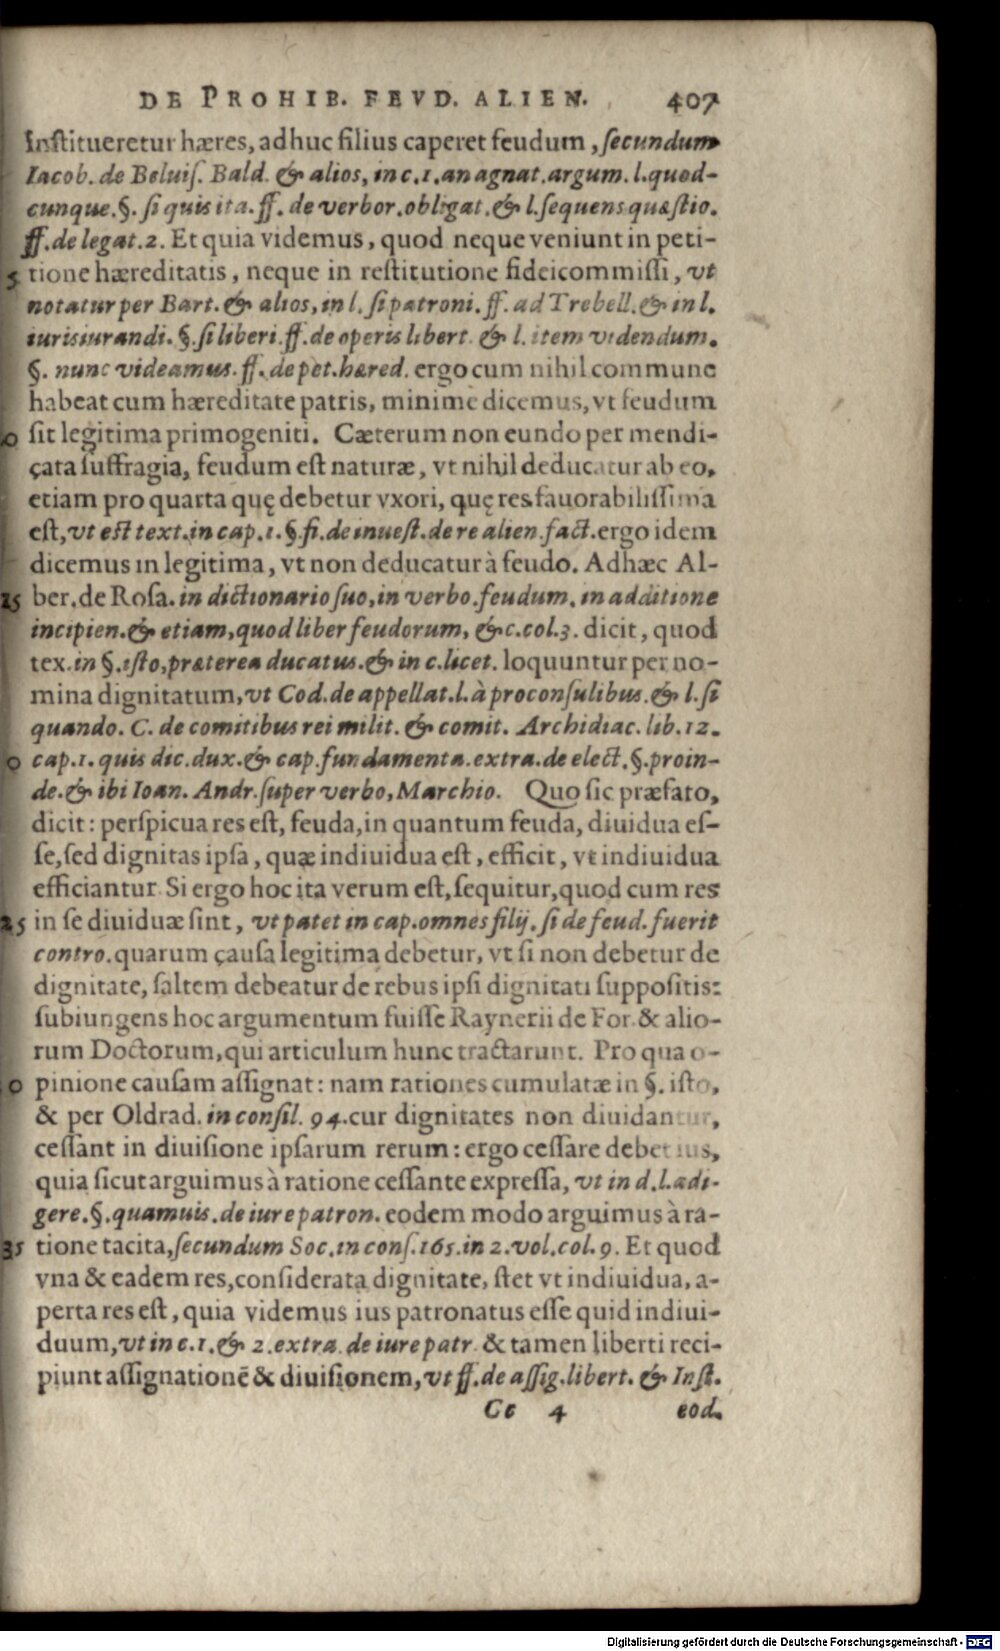 DE PROHIB. FEVD. ALIEN. 407
Institueretur hæres, adhuc filius caperet feudum, secundum
Iacob. de Beluiſ. Bald. & alios, in c. 1. an agnat. argum. l. quod-
cunque. §. ſi quis ita. ff. de verbor. obligat. & l. ſequens quæſtio.
ff. de legat. 2. Et quia videmus, quod neque veniunt in peti-
5 tione hæreditatis, neque in reſtitutione fideicommiſſi, vt
notatur per Bart. & alios, in l. ſi patroni. ff. ad Trebell. & in l.
iurisiurandi. §. ſi liberi. ff. de operis libert. & l. item videndum.
§. nunc videamus. ff. de pet. hæred. ergo cum nihil commune
habeat cum hæreditate patris, minimè dicemus, vt feudum
0 ſit legitima primogeniti. Cæterum non eundo per mendi-
çata ſuffragia, feudum eſt naturæ, vt nihil deducatur ab eo,
etiam pro quarta quę debetur vxori, quę res fauorabiliſſima
eſt, vt eſt text. in cap. 1. §. fi. de inueſt. de re alien. fact. ergo idem
dicemus in legitima, vt non deducatur à feudo. Adhæc Al-
15 ber. de Roſa. in dictionario ſuo, in verbo. feudum. in additione
incipien. & etiam, quod liber feudorum, &c. col. 3. dicit, quod
tex. in §. iſto, præterea ducatus. & in c. licet. loquuntur per no-
mina dignitatum, vt Cod. de appellat. l. à proconſulibus. & l. ſi
quando. C. de comitibus rei milit. & comit. Archidiac. lib. 12.
0 cap. 1. quis dic. dux. & cap. fundamenta. extra. de elect. §. proin-
de. & ibi Ioan. Andr. ſuper verbo, Marchio. Quo ſic præfato,
dicit: perſpicua res eſt, feuda, in quantum feuda, diuidua eſ-
ſe, ſed dignitas ipſa, quæ indiuidua eſt, efficit, vt indiuidua
efficiantur. Si ergo hoc ita verum eſt, ſequitur, quod cum res
25 in ſe diuiduæ ſint, vt patet in cap. omnes filij. ſi de feud. fuerit
contro. quarum çauſa legitima debetur, vt ſi non debetur de
dignitate, ſaltem debeatur de rebus ipſi dignitati ſuppoſitis:
ſubiungens hoc argumentum fuiſſe Raynerii de For. & alio-
rum Doctorum, qui articulum hunc tractarunt. Pro qua o-
0 pinione cauſam aſſignat: nam rationes cumulatæ in §. iſto,
& per Oldrad. in conſil. 94. cur dignitates non diuidantur,
ceſſant in diuiſione ipſarum rerum: ergo ceſſare debet ius,
quia ſicut arguimus à ratione ceſſante expreſſa, vt in d. l. adi-
gere. §. quamuis. de iure patron. eodem modo arguimus à ra-
35 tione tacita, ſecundum Soc. in conſ. 165. in 2. vol. col. 9. Et quod
vna & eadem res, conſiderata dignitate, ſtet vt indiuidua, a-
perta res eſt, quia videmus ius patronatus eſſe quid indiui-
duum, vt in c. 1. & 2. extra. de iure patr. & tamen liberti reci-
piunt aſſignationē & diuiſionem, vt ff. de aſſig. libert. & Inſt.
Cc 4 eod.
Digitalisierung gefördert durch die Deutsche Forschungsgemeinschaft - DFG